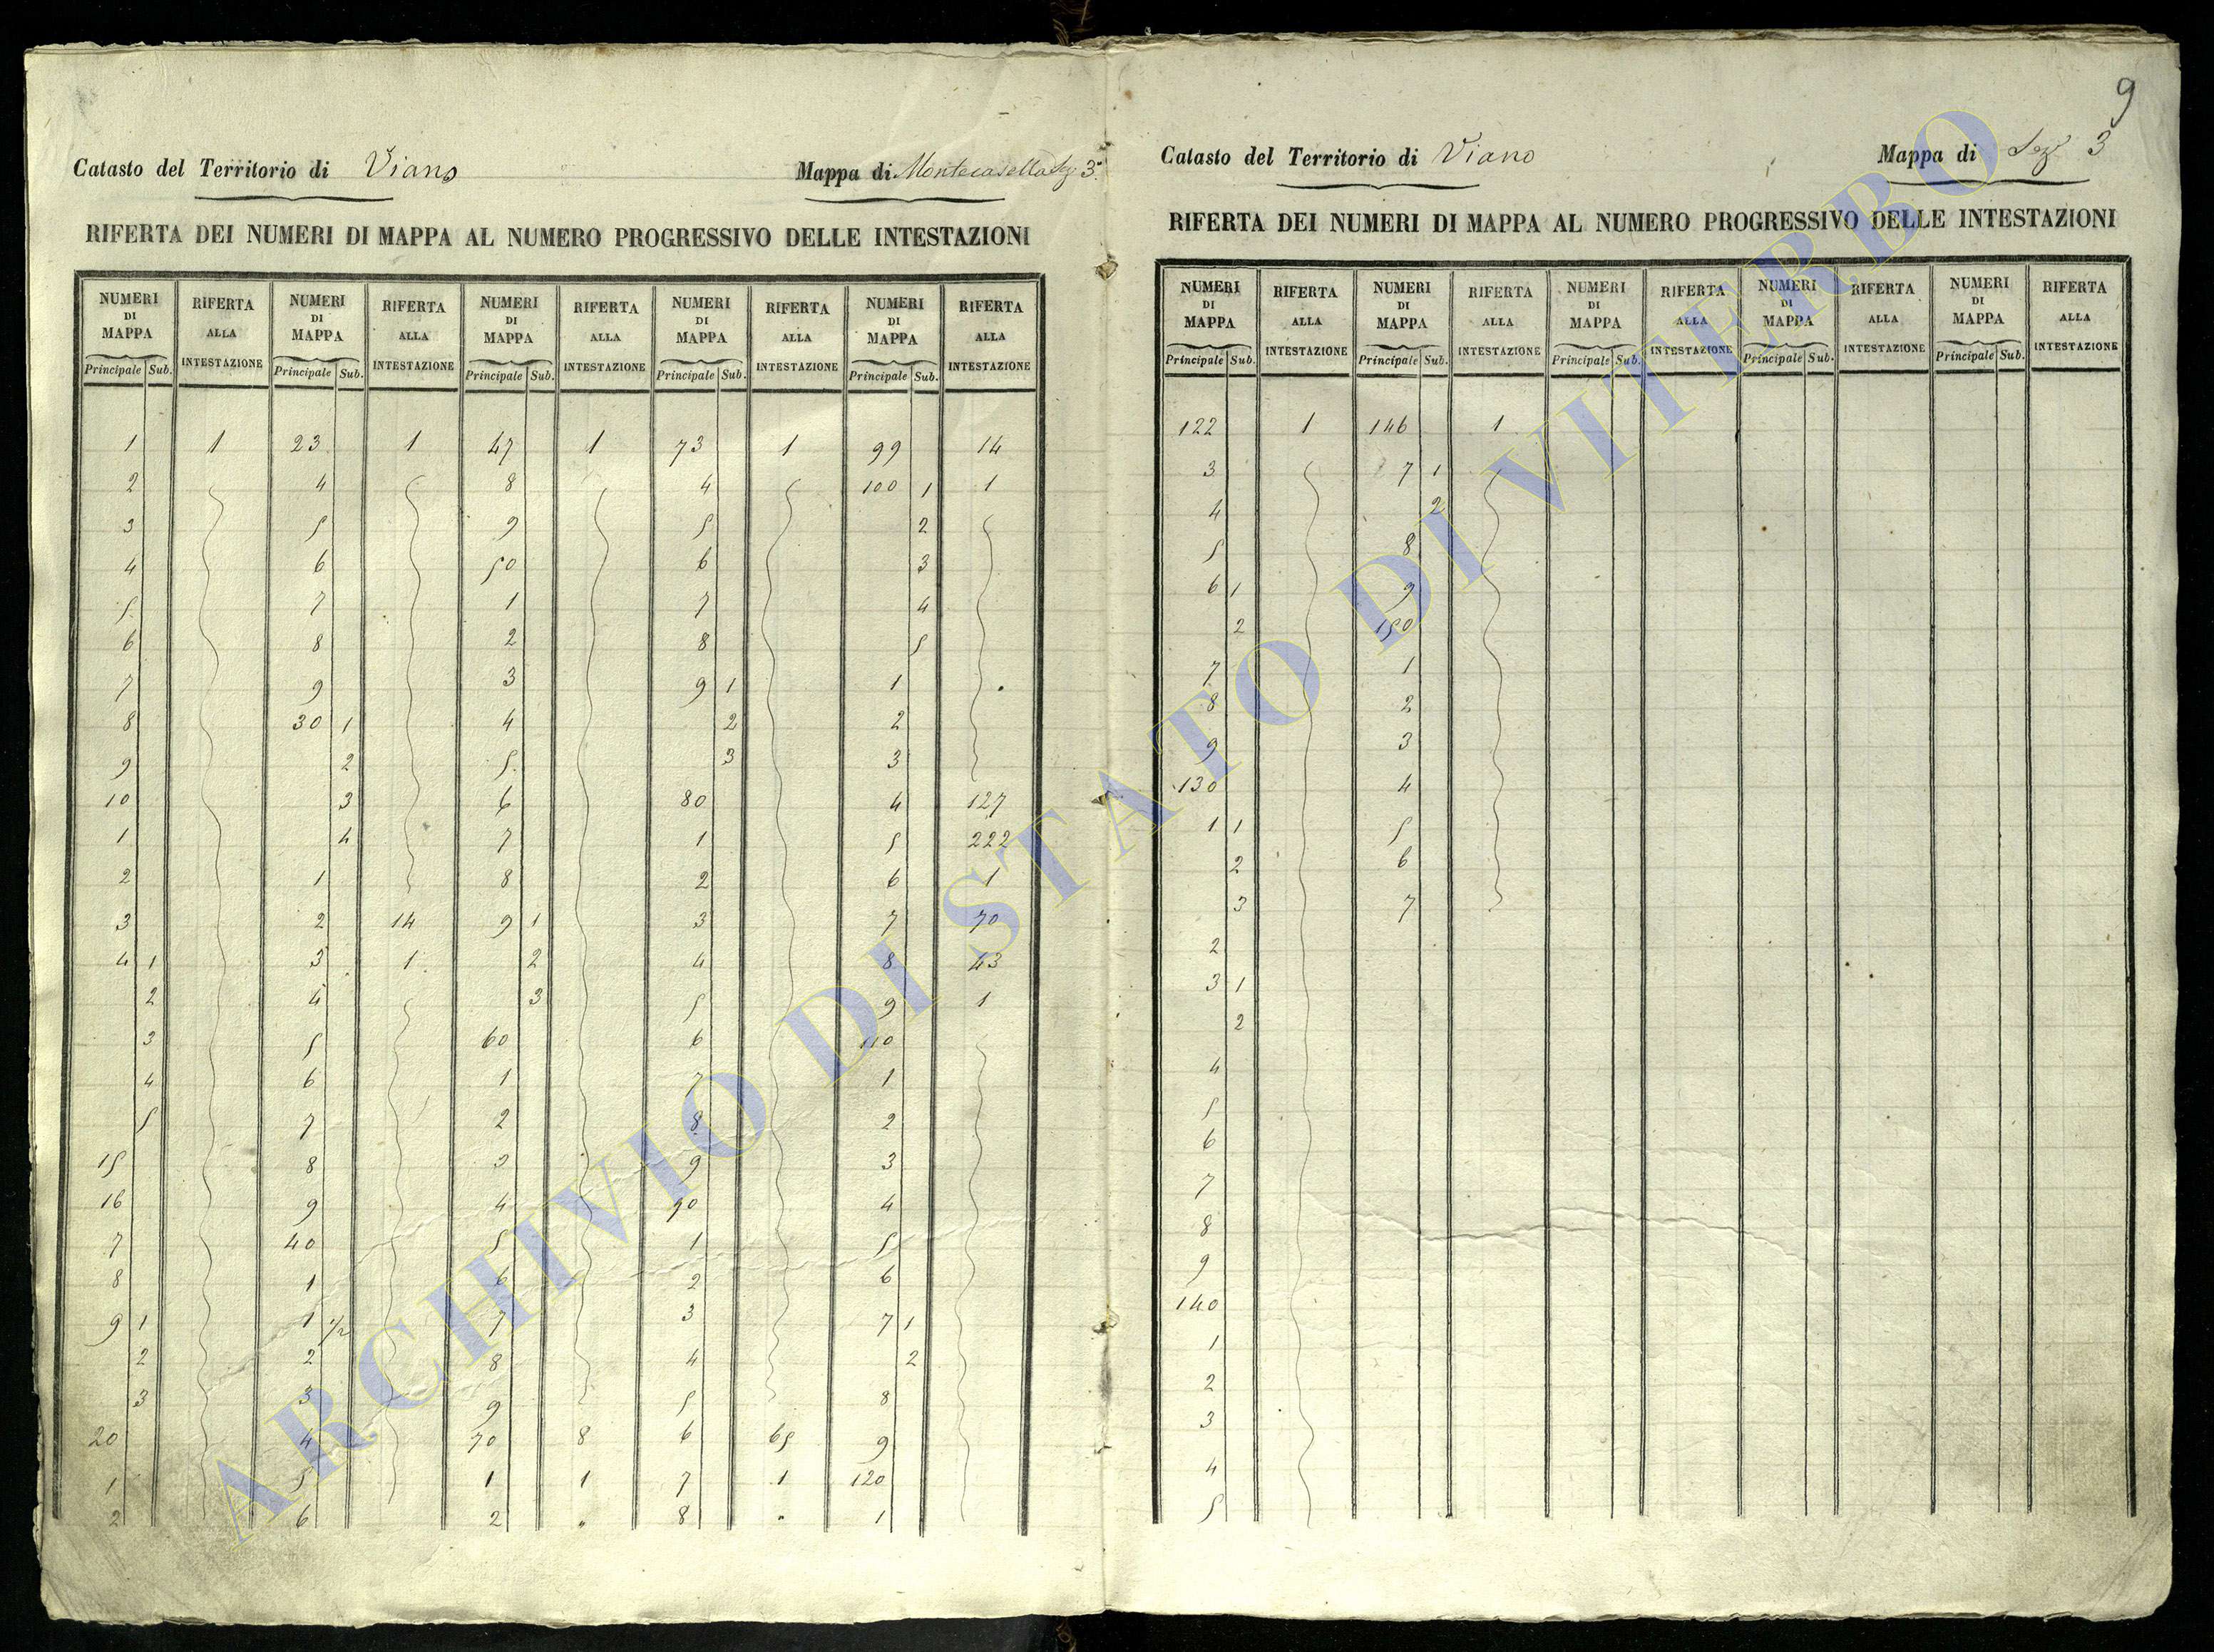 9
Catasto del Territorio di Viano Mappa di Montecasella Sez 3ª
RIFERTA DEI NUMERI DI MAPPA AL NUMERO PROGRESSIVO DELLE INTESTAZIONI
NUMERI DI MAPPA RIFERTA ALLA INTESTAZIONE NUMERI DI MAPPA RIFERTA ALLA INTESTAZIONE NUMERI DI MAPPA RIFERTA ALLA INTESTAZIONE NUMERI DI MAPPA RIFERTA ALLA INTESTAZIONE NUMERI DI MAPPA RIFERTA ALLA INTESTAZIONE
Principale Sub. Principale Sub. Principale Sub. Principale Sub. Principale Sub.
1 1 23 1 47 1 73 1 99 14
2 4 8 4 100 1 1
3 5 9 5 2
4 6 50 6 3
5 7 1 7 4
6 8 2 8 5
7 9 3 9 1 1
8 30 1 4 2 2
9 2 5 3 3
10 3 6 80 4 127
1 4 7 1 5 222
2 1 8 2 6 1
3 2 14 9 1 3 7 70
4 1 3 1 2 4 8 43
2 4 3 5 9 1
3 5 60 6 110
4 6 1 7 1
5 7 2 8 2
15 8 3 9 3
16 9 4 90 4
7 40 5 1 5
8 1 6 2 6
9 1 1 1/2 7 3 7 1
2 2 8 4 2
3 3 9 5 8
20 4 70 8 6 65 9
1 5 1 1 7 1 120
2 6 2 " 8 " 1
Catasto del Territorio di Viano Mappa di Sez 3
RIFERTA DEI NUMERI DI MAPPA AL NUMERO PROGRESSIVO DELLE INTESTAZIONI
NUMERI DI MAPPA RIFERTA ALLA INTESTAZIONE NUMERI DI MAPPA RIFERTA ALLA INTESTAZIONE NUMERI DI MAPPA RIFERTA ALLA INTESTAZIONE NUMERI DI MAPPA RIFERTA ALLA INTESTAZIONE NUMERI DI MAPPA RIFERTA ALLA INTESTAZIONE
Principale Sub. Principale Sub. Principale Sub. Principale Sub. Principale Sub.
122 1 146 1
3 7 1
4 2
5 8
6 1 9
2 150
7 1
8 2
9 3
130 4
1 1 5
2 6
3 7
2
3 1
2
4
5
6
7
8
9
140
1
2
3
4
5
ARCHIVIO DI STATO DI VITERBO